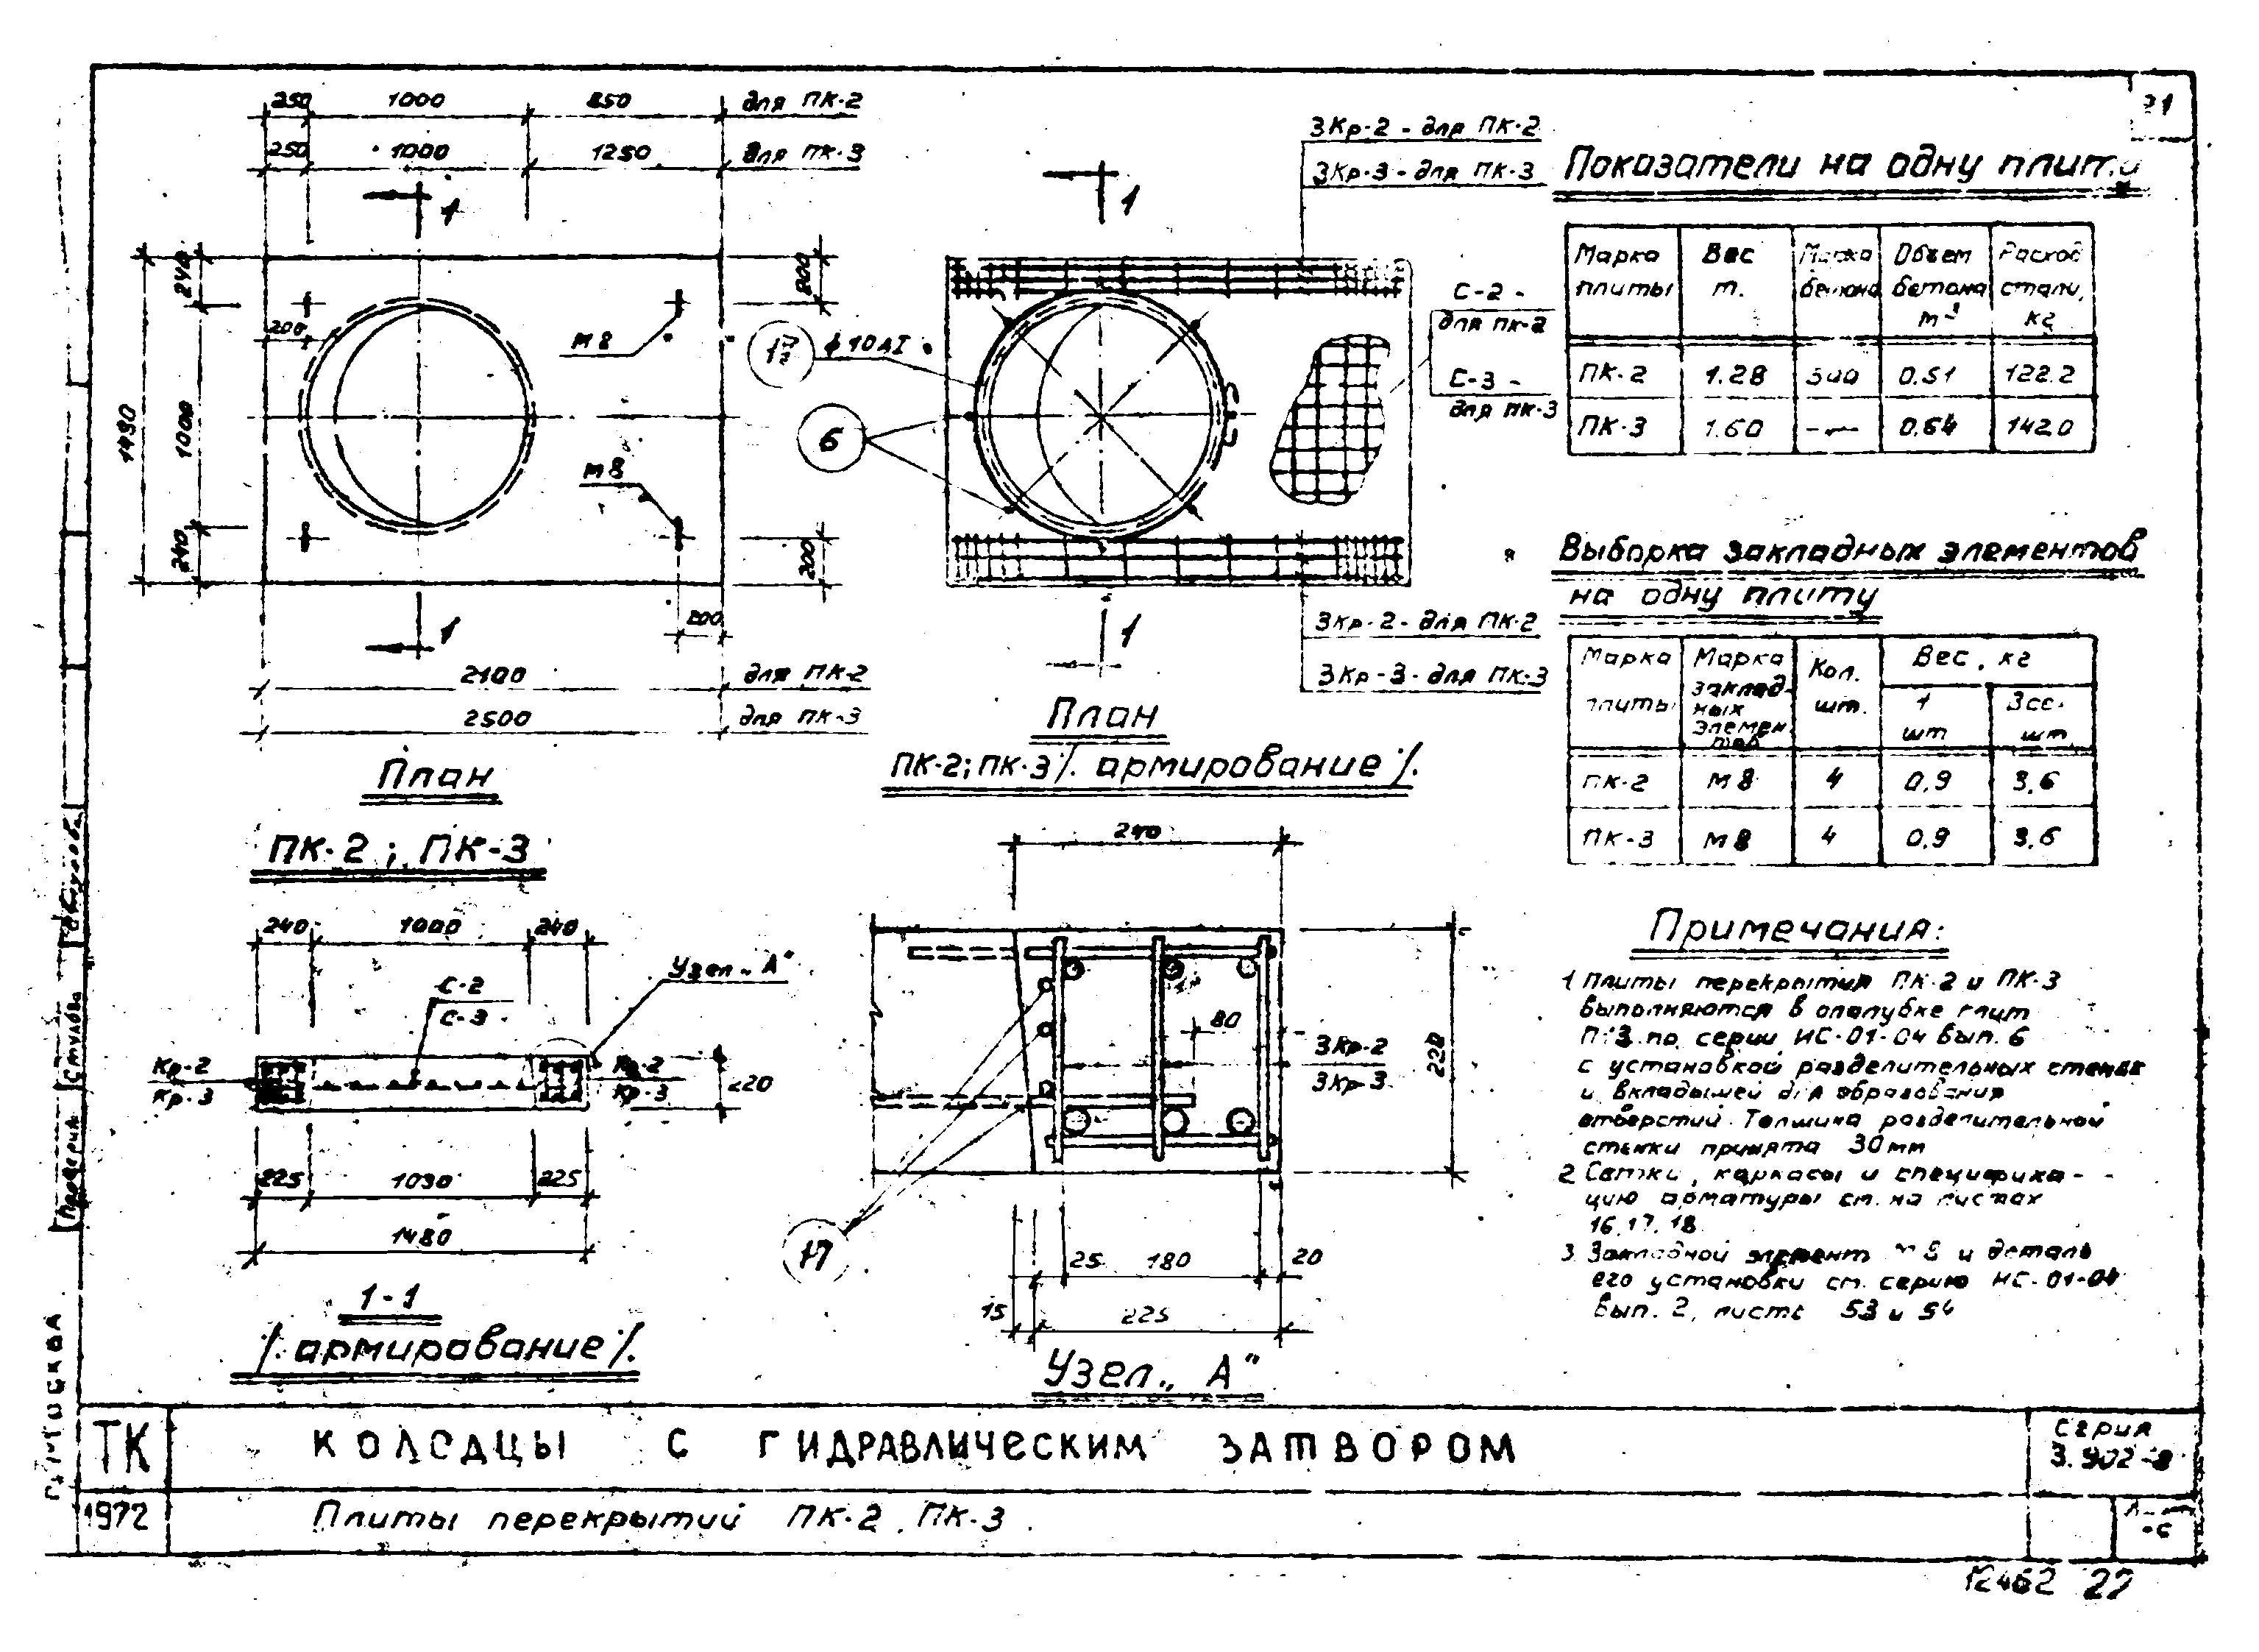 250 1000 850 для ПК-2
250 1000 1250 для ПК-3
1 1
240 1000 240
1480
200
200
200
200
М8
М8
2100 для ПК-2
2500 для ПК-3
План
ПК-2; ПК-3
3Кр-2 - для ПК-2
3Кр-3 - для ПК-3
С-2 -
для ПК-2
С-3 -
для ПК-3
ф10АI
6
3Кр-2 - для ПК-2
3Кр-3 - для ПК-3
1 1
План
ПК-2; ПК-3 /. армирование /.
240 1000 240
С-2
С-3
Узел „А"
Кр-2
Кр-3
Кр-2
Кр-3
220
225 1030 225
1480
1-1
/. армирование /.
240
80
3Кр-2
3Кр-3
220
17
25 180 20
15 225
Узел „А"
Показатели на одну плиту
Марка плиты Вес т. Марка бетона Объем бетона м³ Расход стали, кг
ПК-2 1.28 300 0.51 122.2
ПК-3 1.60 -〃- 0.64 142.0
Выборка закладных элементов
на одну плиту
Марка плиты Марка закладных элементов Кол. шт. Вес, кг
1 шт Все. шт.
ПК-2 М8 4 0,9 3,6
ПК-3 М8 4 0,9 3,6
Примечания:
1 Плиты перекрытия ПК-2 и ПК-3
выполняются в опалубке плит
по серии ИС-01-04 Вып. 6
с установкой разделительных стенок
и вкладышей для образования
отверстий. Толщина разделительной
стенки принята 30мм
2 Сетки, каркасы и специфика-
цию арматуры см. на листах
16, 17, 18.
3 Закладной элемент М8 и деталь
его установки см. серию ИС-01-04
Вып. 2, листы 53 и 54
Проверил
г. Москва
ТК
1972
КОЛОДЦЫ С ГИДРАВЛИЧЕСКИМ ЗАТВОРОМ
Серия
3.902-8
Плиты перекрытий ПК-2, ПК-3.
12462 22